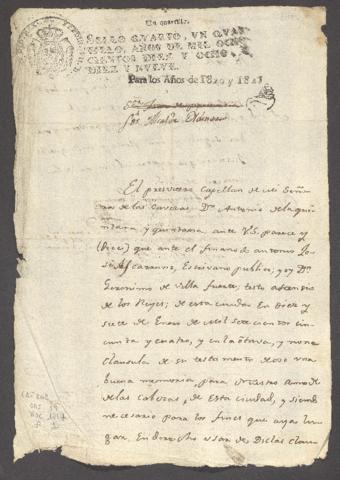 Un quartillo.
SELLO QUARTO, VN QUAR
TILLO, AÑOS DE MIL OCHO
CIENTOS DIEZ Y OCHO, Y
DIEZ Y NUEVE.
Para los Años de 1820 y 1821
El presvitero Capellan de Nra Señora
de las Caveras, Dn Antonio de la quin
tana y quintana, ante VS. parece y
(Dice) que ante el finado Antonio Jo
Escribano publico, y Dn
Geronimo de Villa fuerte; testo
de los Reyes; de esta ciudad en Diez y
siete de Enero de Mil sete cientos cin
cuenta y cuatro, y en la octava, y nona
Clausula de su testamento dexo una
buena memoria para Nuestro Amo de
de las Cabezas, de esta ciudad, y siendo
necesario para los fines que aya lu
gar, En derecho usar de Dichas Clau